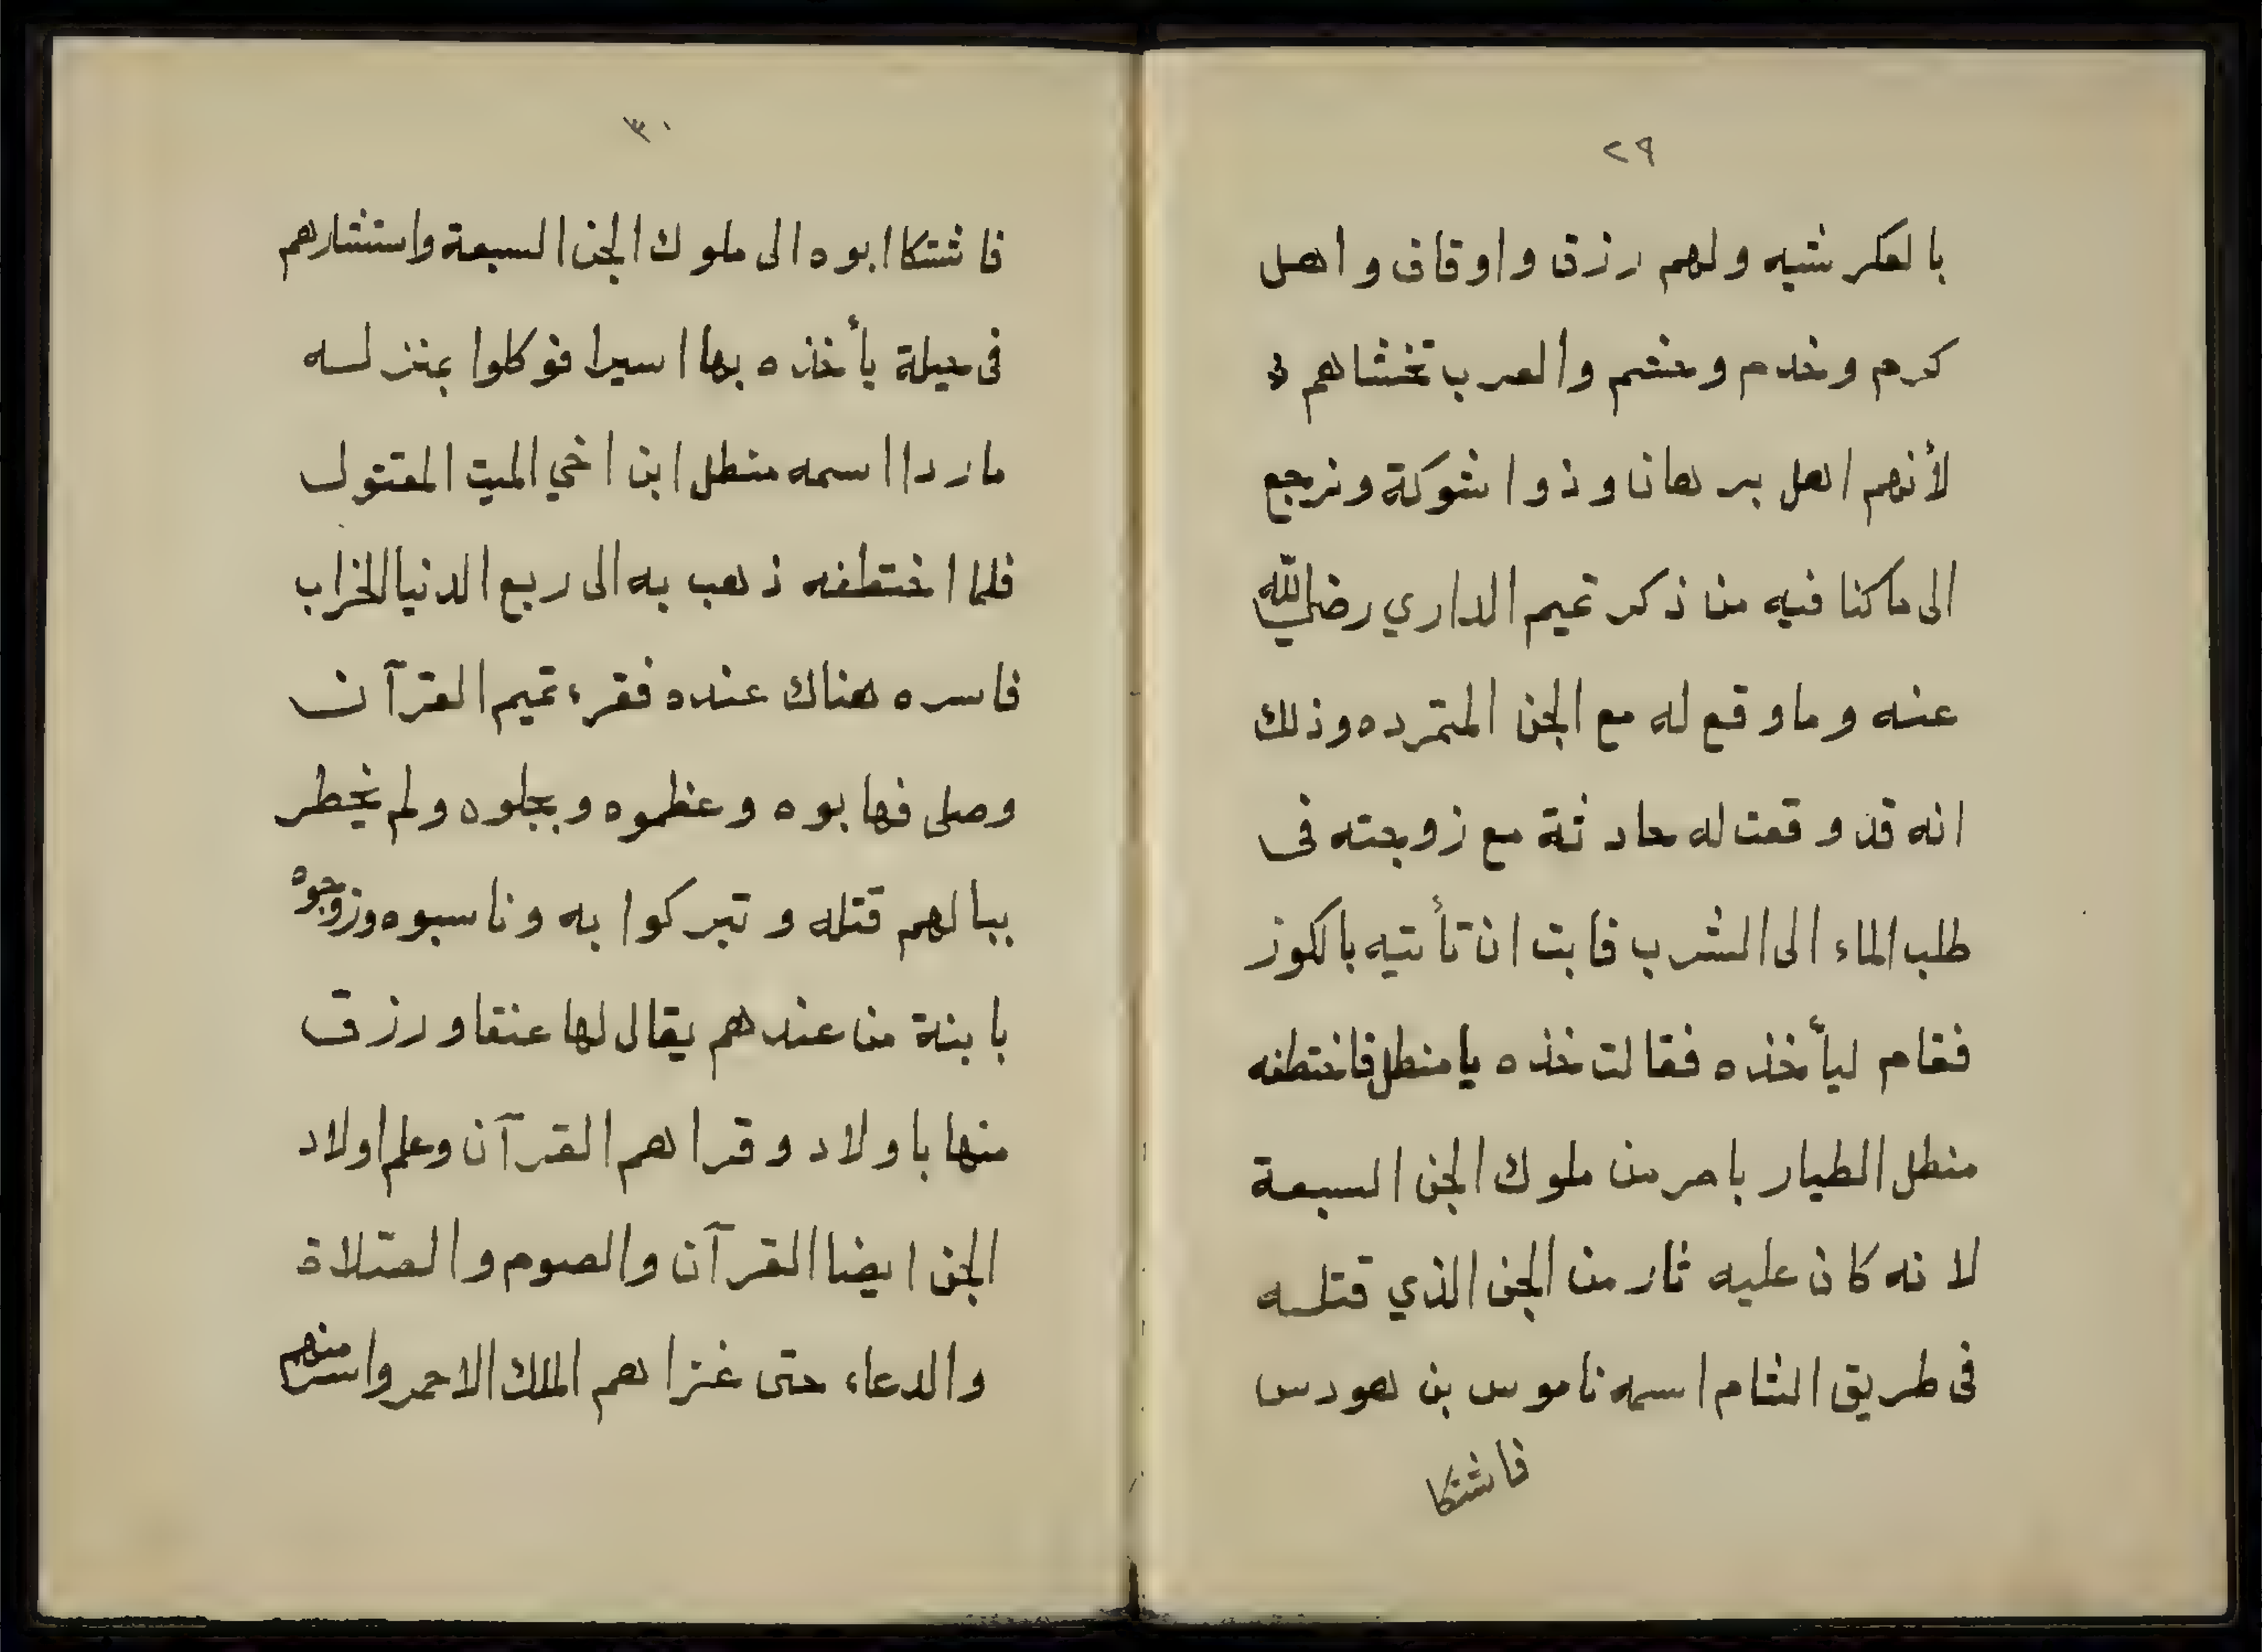 ٢٩
بالعكرشيه ولهم رزق واوقاف واهل
كرم وخدم وحشم والعرب تخشاهم
لأنهم اهل برهان وذوا شوكة ونرجع
الى ماكنا فيه من ذكر تميم الداري رضي الله
عنه وماوقع له مع الجن المتمرده وذلك
انه قد وقعت له حادثة مع زوجته فى
طلب الماء الى الشرب فابت ان تأتيه بالكوز
فقام ليأخذه فقالت خذه يا منطل فاختطفه
منطل الطيار بامر من ملوك الجن السبعة
لانه كان عليه ثار من الجن الذي قتله
فى طريق الشام اسمه ناموس بن هودس
فاشتكا
٣٠
فاشتكا ابوه الى ملوك الجن السبعة واستشارهم
فى حيلة يأخذه بها اسيرا فوكلوا بمنزلسه
ماردا اسمه منطل ابن اخي الميت المقتول
فلما اختطفه ذهب به الى ربع الدنيا الخراب
فاسره هناك عنده فقرء تميم القرآن
وصلى فهابوه وعظموه وبجلوه ولم يخطر
ببالهم قتله وتبركوا به وناسبوه وزوجوه
بابنة من عندهم يقال لها عنقا ورزق
منها باولاد وقراهم القرآن وعلم اولاد
الجن ايضا القرآن والصوم والصلاة
والدعاء حتى غزاهم الملك الاحمر واسر منهم